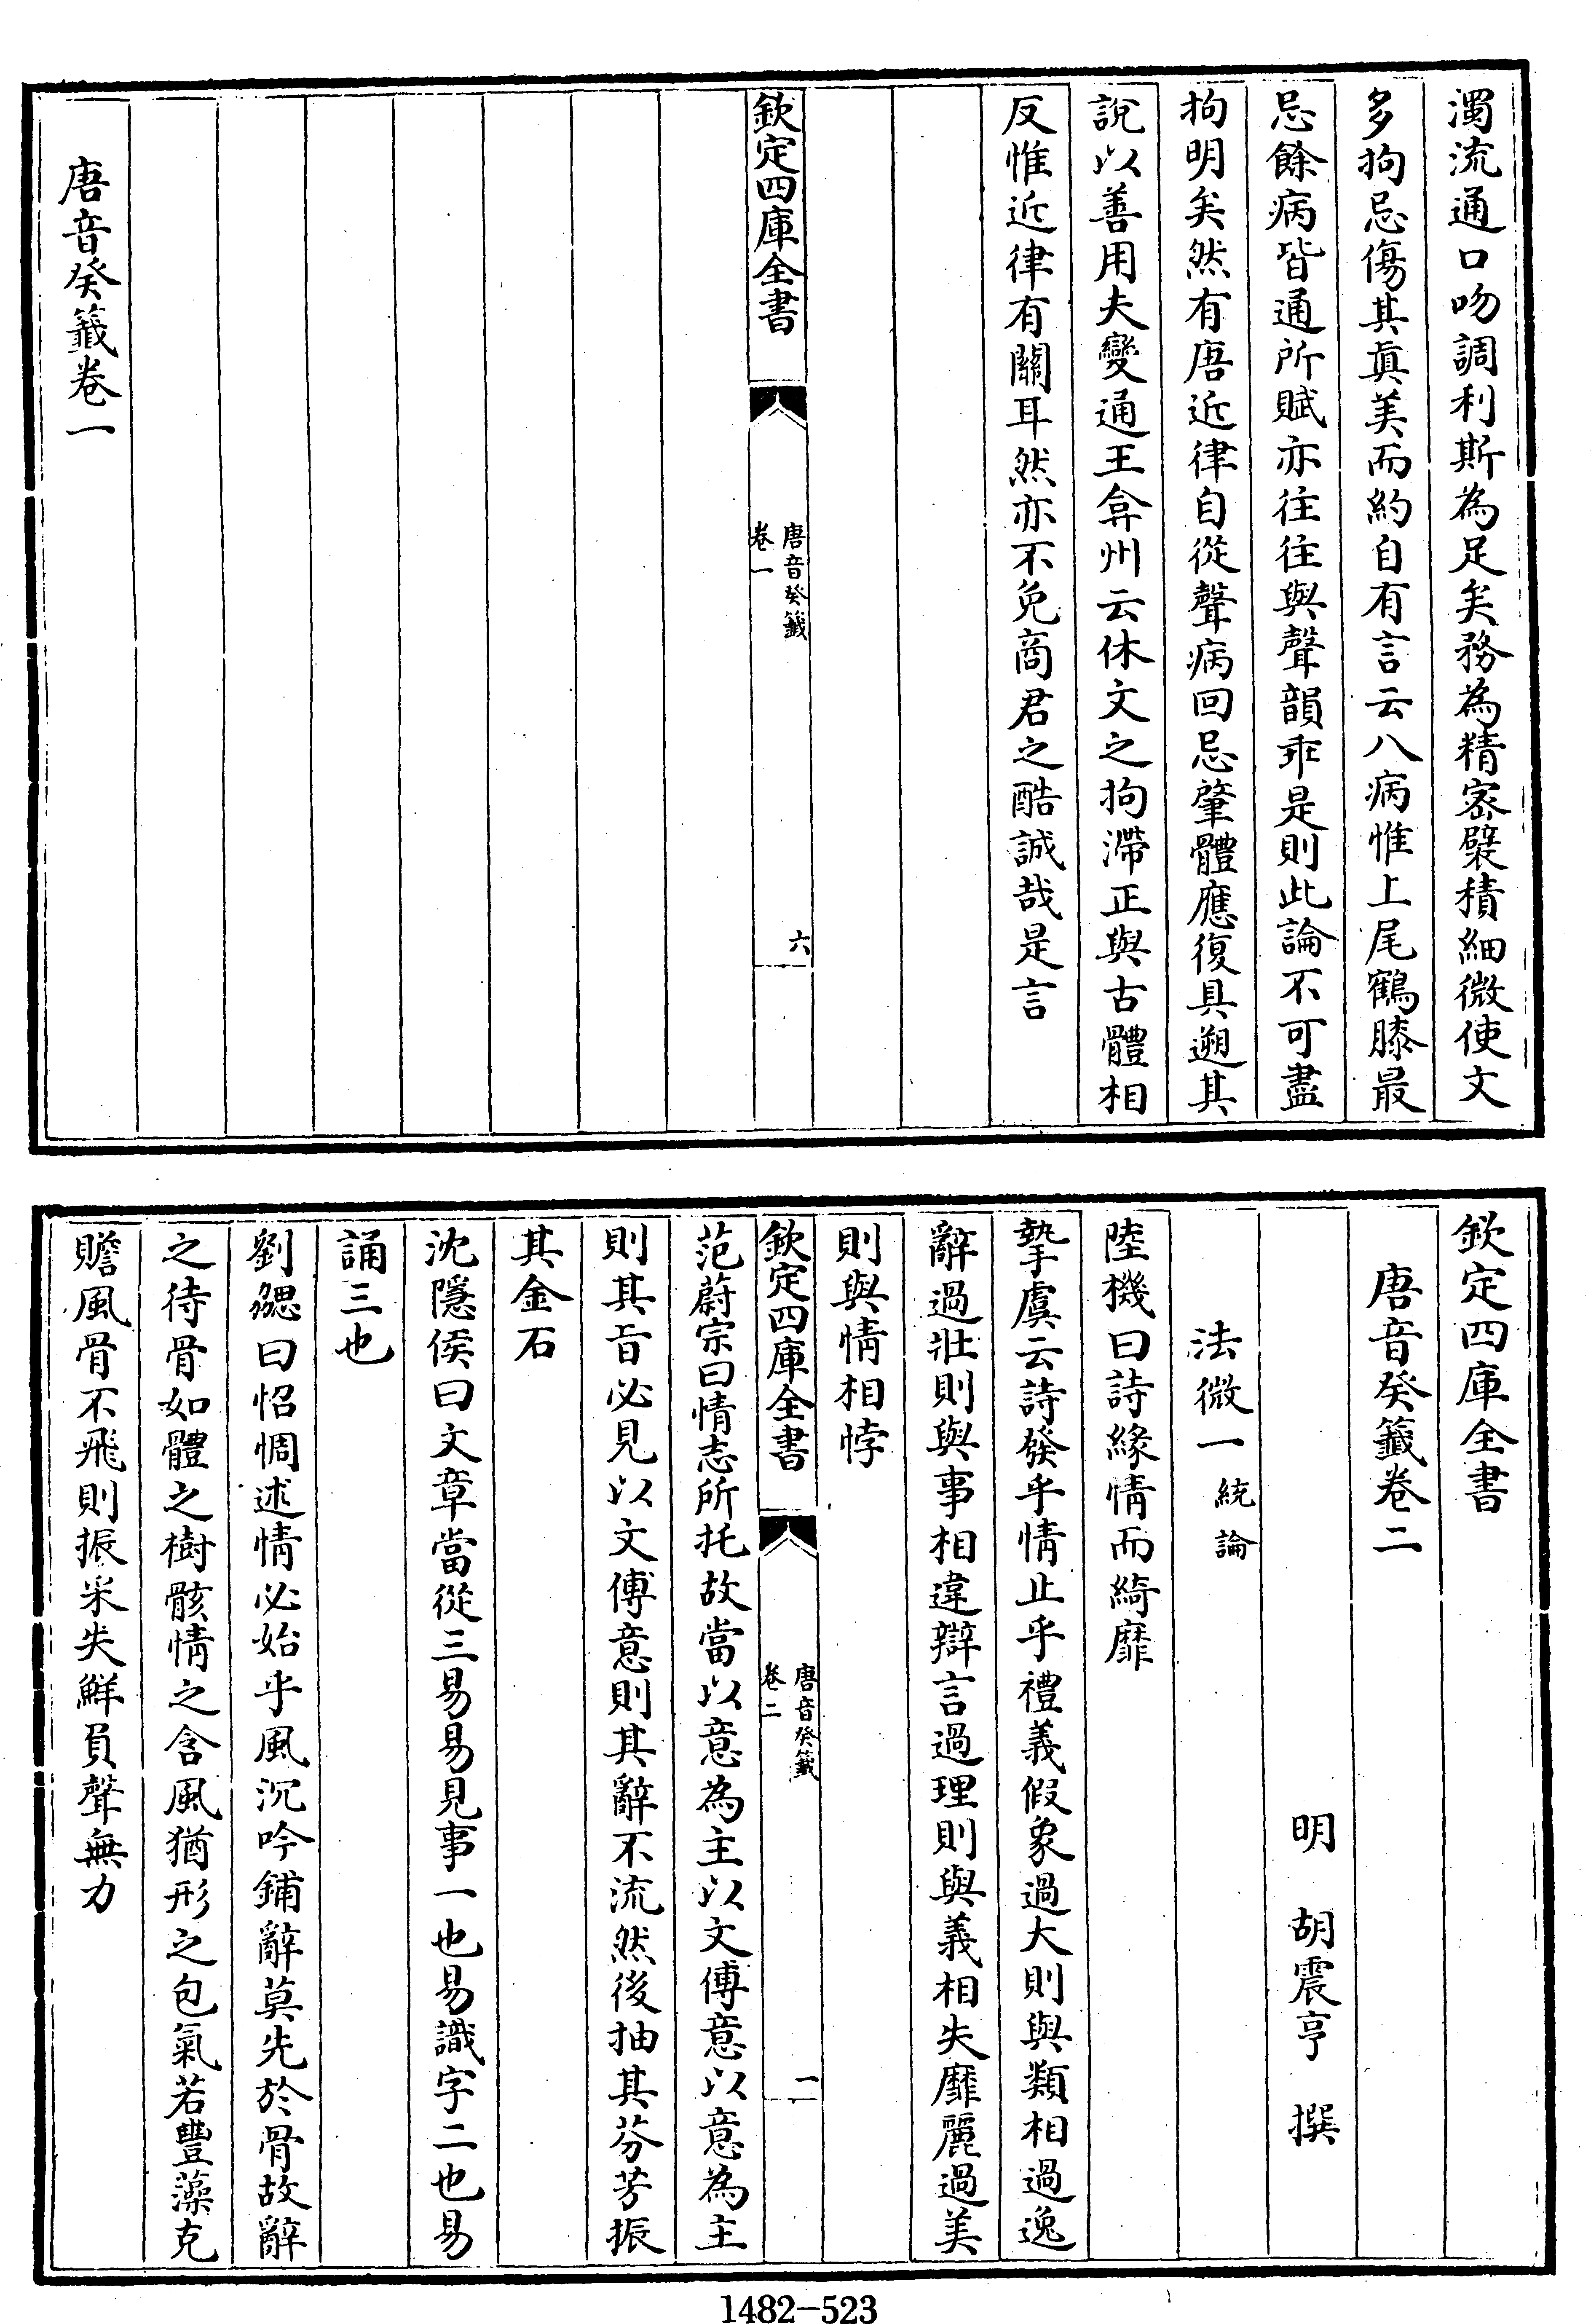 濁流通口吻調利斯為足矣務為精宻襞積細微使文
多拘忌傷其真美而約自有言云八病惟上尾鶴膝最
忌餘病皆通所賦亦往往與聲韻乖是則此論不可盡
拘明矣然有唐近律自從聲病回忌肇體應復具遡其
說以善用夫變通王弇州云休文之拘滯正與古體相
反惟近律有關耳然亦不免商君之酷誠哉是言
欽定四庫全書
唐音癸籤
卷一
六
唐音癸籤卷一
欽定四庫全書
唐音癸籤卷二
明 胡震亨 撰
法微一 統論
陸機曰詩緣情而綺靡
摯虞云詩發乎情止乎禮義假象過大則與類相過逸
辭過壯則與事相違辯言過理則與義相失靡麗過美
則與情相悖
欽定四庫全書
唐音癸籤
卷二
一
范蔚宗曰情志所托故當以意為主以文傅意以意為主
則其旨必見以文傅意則其辭不流然後抽其芬芳振
其金石
沈隱侯曰文章當從三易易見事一也易識字二也易
誦三也
劉勰曰怊惆述情必始乎風沉吟鋪辭莫先於骨故辭
之待骨如體之樹骸情之含風猶形之包氣若豐藻克
贍風骨不飛則振采失鮮負聲無力
1482-523